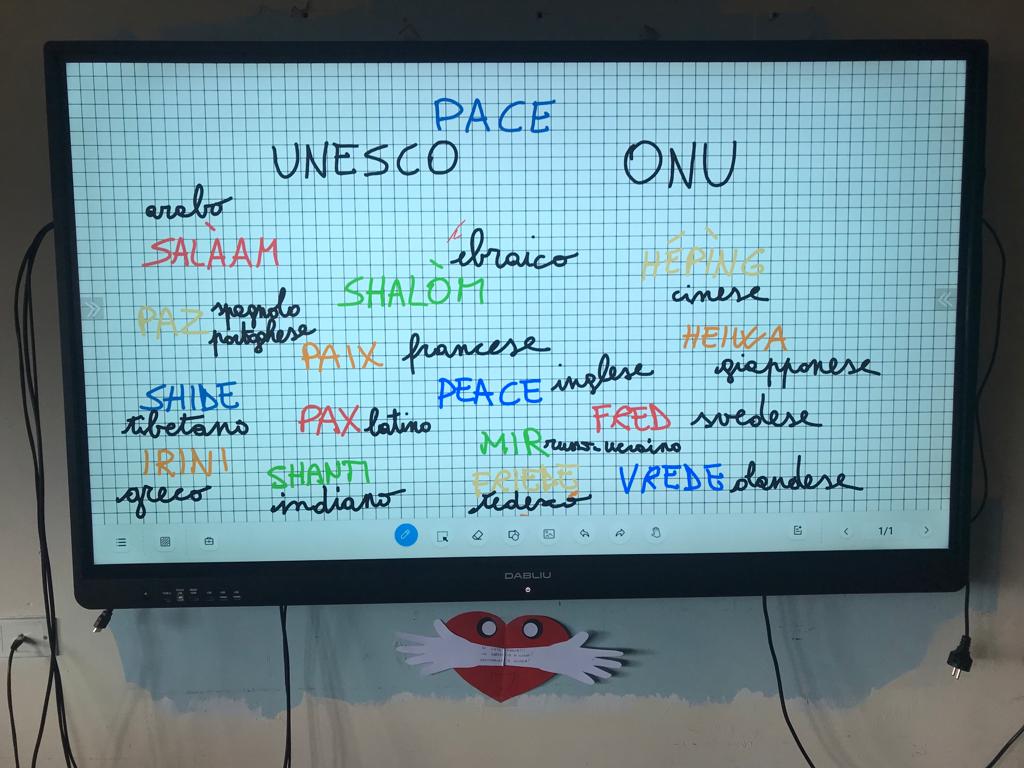 PACE
UNESCO ONU
arabo
SALÀAM
ebraico
SHALÒM
HÉPÌNG
cinese
PAZ spagnolo
portoghese
PAIX francese
HEIWA
giapponese
SHIDE
tibetano
PEACE inglese
PAX latino
FRED svedese
MIR russo-ucraino
IRINI
greco
SHANTI
indiano
FRIEDE
tedesco
VREDE olandese
1/1
DABLIU